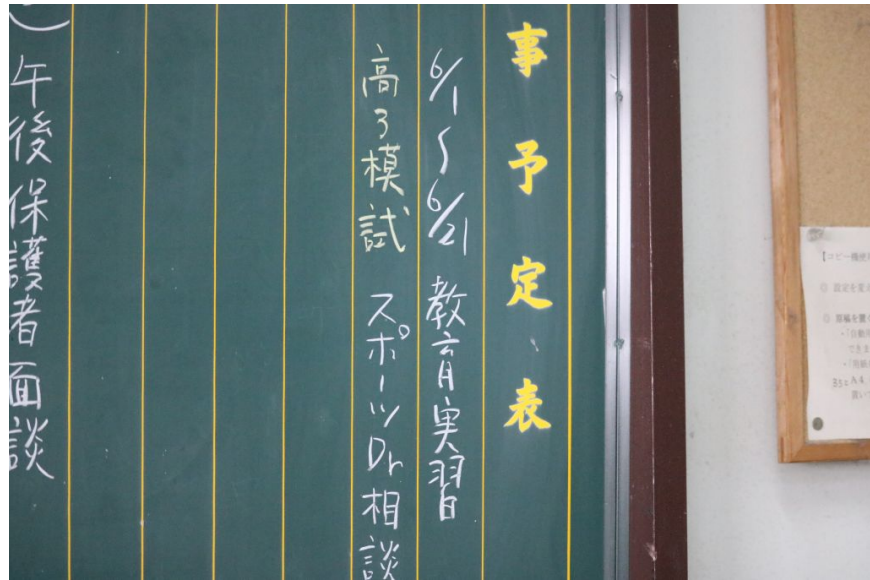 事予定表
6/1〜6/21 教育実習
高3模試 スポーツDr相談
午後保護者面談
【コピー機使
◎ 設定を変